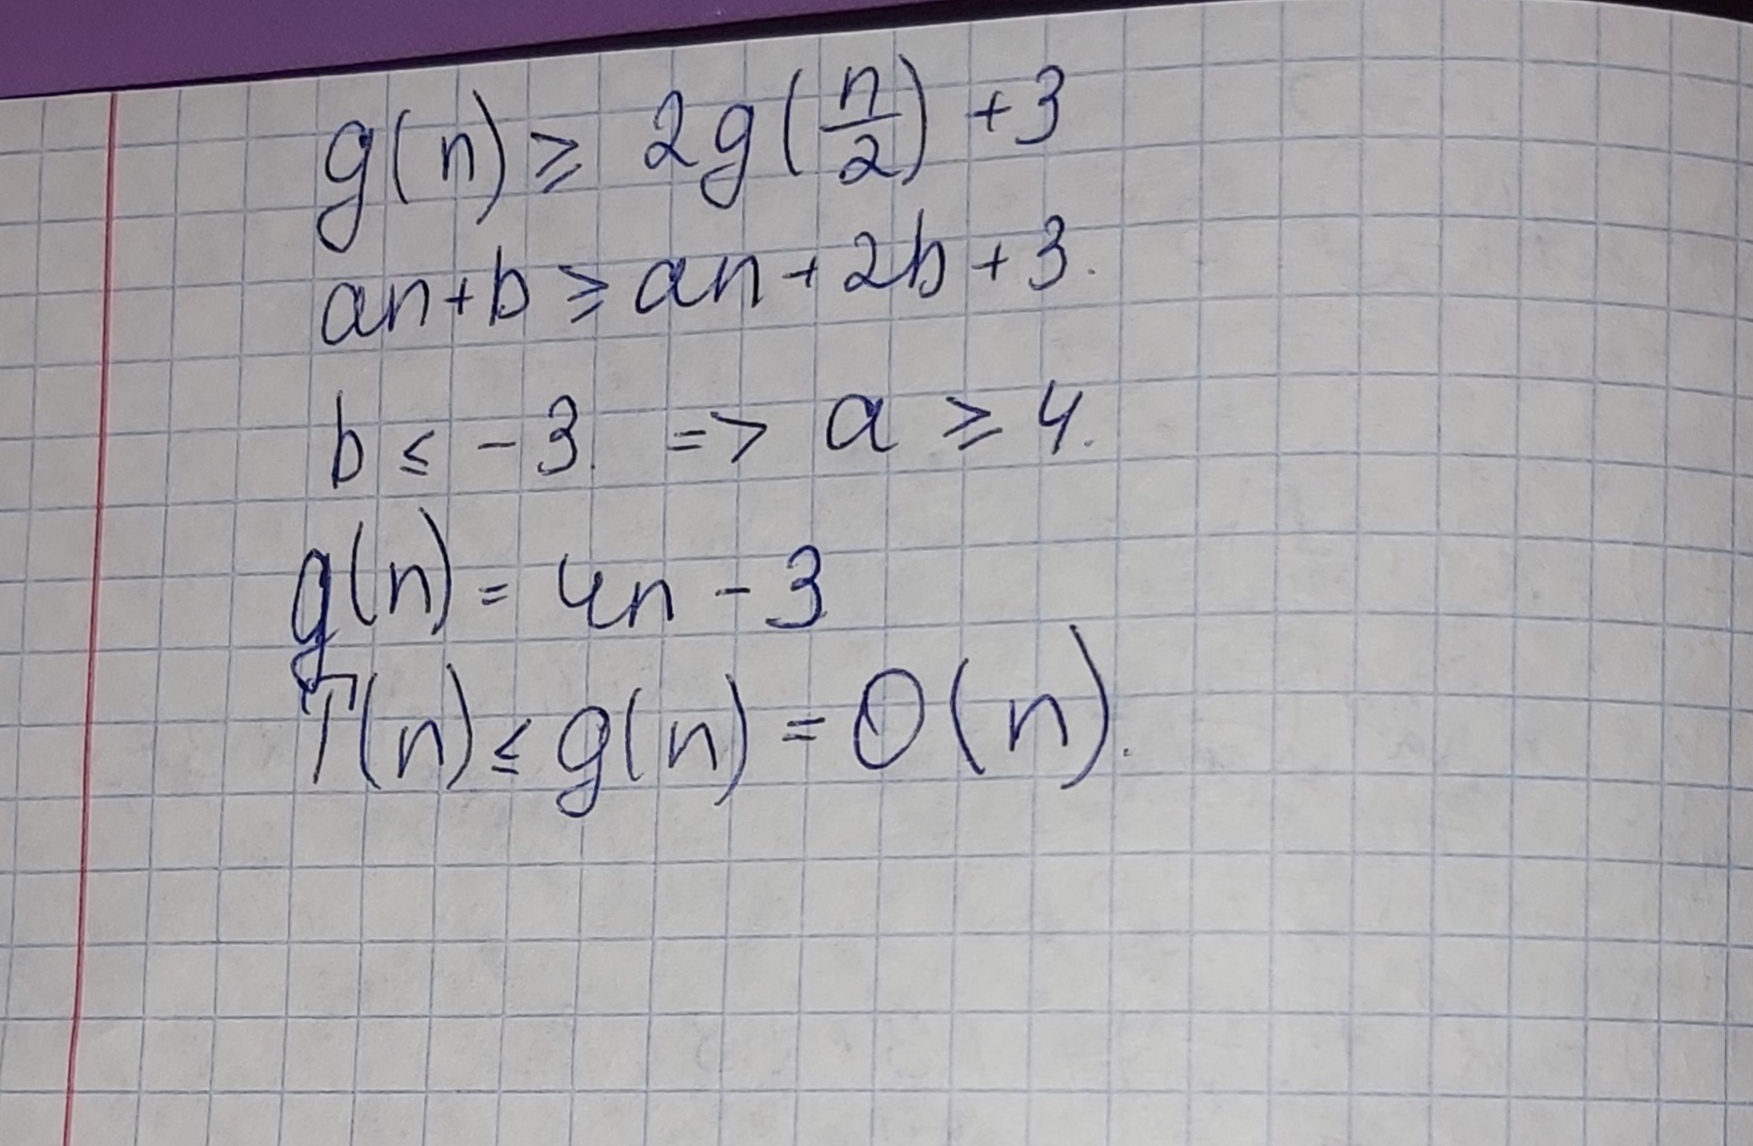 g(n) ≥ 2g(n/2) + 3
an+b ≥ an + 2b + 3.
b ≤ -3. => a ≥ 4.
g(n) = 4n - 3
T(n) ≤ g(n) = O(n).